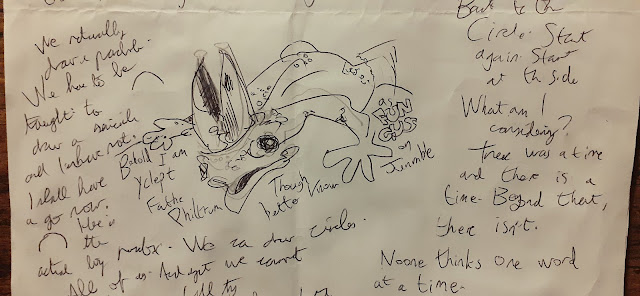 We actually
draw a
We have to be
taught to
draw a semicircle
and I have not.
I shall have
a go now.
Here's
the
actual
paradox. We can draw circles.
All of us. And yet we cannot
Behold I am
yclept
Father
Philtrum
Though
better
Know
on
Back to the
Circle. Start
again. Start
at the side
What am I
considering?
There was a time
and there is a
time. Beyond that,
there isn't.
Noone thinks one word
at a time.